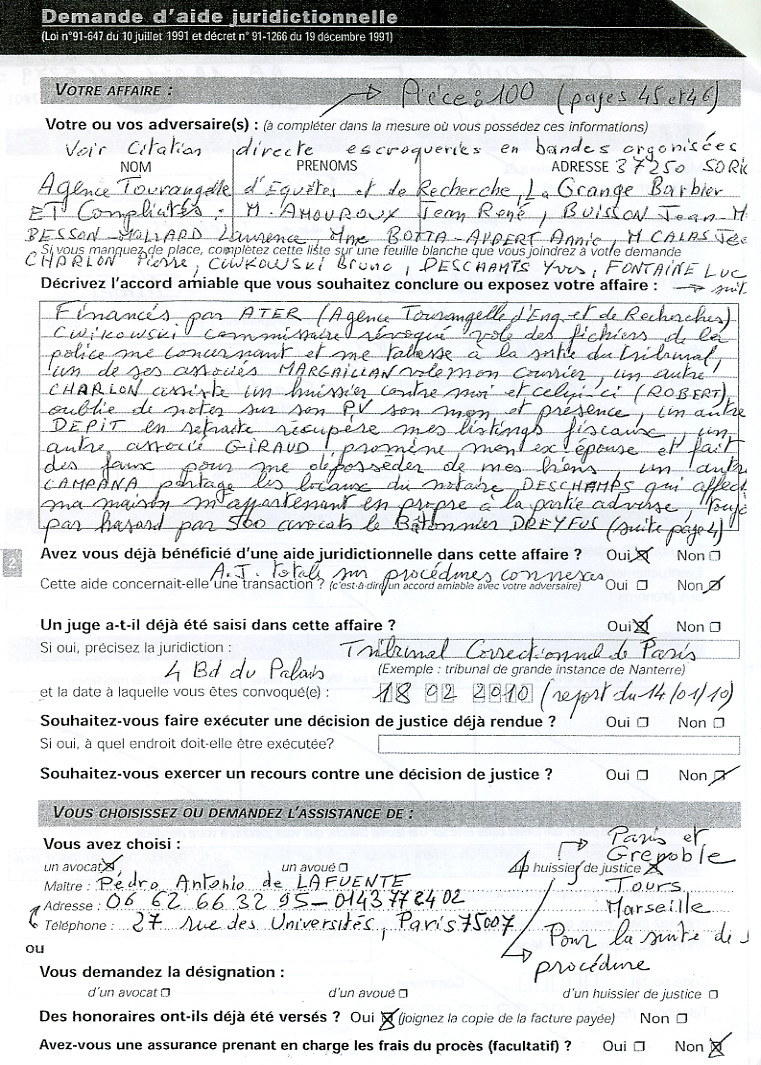 Demande d'aide juridictionnelle
(Loi n°91-647 du 10 juillet 1991 et décret n° 91-1266 du 19 décembre 1991)
VOTRE AFFAIRE : → Pièce : 100 (pages 45 et 46)
Votre ou vos adversaire(s) : (à compléter dans la mesure où vous possédez ces informations)
Voir Citation directe escroqueries en bandes organisées
NOM PRENOMS ADRESSE 37250 SORI
Agence Tourangelle d'Equêtes et de Recherche, La Grange Barbier
ET Complicités : M. AMOUROUX Jean René, BUISSON Jean-M
BESSON-MOLLARD Laurence Mme BOTTA-APPERT Annie, M CALAS Je
Si vous manquez de place, complétez cette liste sur une feuille blanche que vous joindrez à votre demande
CHARLON Pierre, CWIKOWSKI Bruno, DESCHAMPS Yves, FONTAINE LUC
Décrivez l'accord amiable que vous souhaitez conclure ou exposez votre affaire : → suit
Financés par ATER (Agence Tourangelle d'Enq et de Recherches)
CWIKOWSKI commissaire révoqué vole des fichiers de la
police me concernant et me tabasse à la sortie du tribunal,
un de ses associés MARGAILLAN vole mon courrier, un autre
CHARLON assiste un huissier contre moi et celui-ci (ROBERT)
oublie de noter sur son PV son nom et présence, un autre
DEPIT en retraite récupère mes listings fiscaux, un
autre associé GIRAUD, promène mon ex épouse et fait
des faux pour me déposséder de mes biens, un autre
CAMPANA partage les locaux du notaire DESCHAMPS qui affect
ma maison m'appartenant en propre à la partie adverse,
par hasard par 500 avocats le Bâtonnier DREYFUS (suite page 4)
2
Avez vous déjà bénéficié d'une aide juridictionnelle dans cette affaire ? Oui ☒ Non ☐
A.J. totale sur procédures connexes
Cette aide concernait-elle une transaction ? (c'est-à-dire un accord amiable avec votre adversaire) Oui ☐ Non ☒
Un juge a-t-il déjà été saisi dans cette affaire ? Oui ☒ Non ☐
Si oui, précisez la juridiction : Tribunal Correctionnel de Paris
4 Bd du Palais (Exemple : tribunal de grande instance de Nanterre)
et la date à laquelle vous êtes convoqué(e) : 18 02 2010 (report du 14/01/10)
Souhaitez-vous faire exécuter une décision de justice déjà rendue ? Oui ☐ Non ☐
Si oui, à quel endroit doit-elle être exécutée?
Souhaitez-vous exercer un recours contre une décision de justice ? Oui ☐ Non ☒
VOUS CHOISISSEZ OU DEMANDEZ L'ASSISTANCE DE :
Vous avez choisi : → Paris et
Grenoble
un avocat ☒ un avoué ☐ 4 huissier de justice ☒
Maître : Pédro Antonio de LAFUENTE Tours
Adresse : 06 62 66 32 95 – 0143778402 Marseille
Téléphone : 27 rue des Universités, Paris 75007
→ Pour la suite de
procédure
ou
Vous demandez la désignation :
d'un avocat ☐ d'un avoué ☐ d'un huissier de justice ☐
Des honoraires ont-ils déjà été versés ? Oui ☒ (joignez la copie de la facture payée) Non ☐
Avez-vous une assurance prenant en charge les frais du procès (facultatif) ? Oui ☐ Non ☒